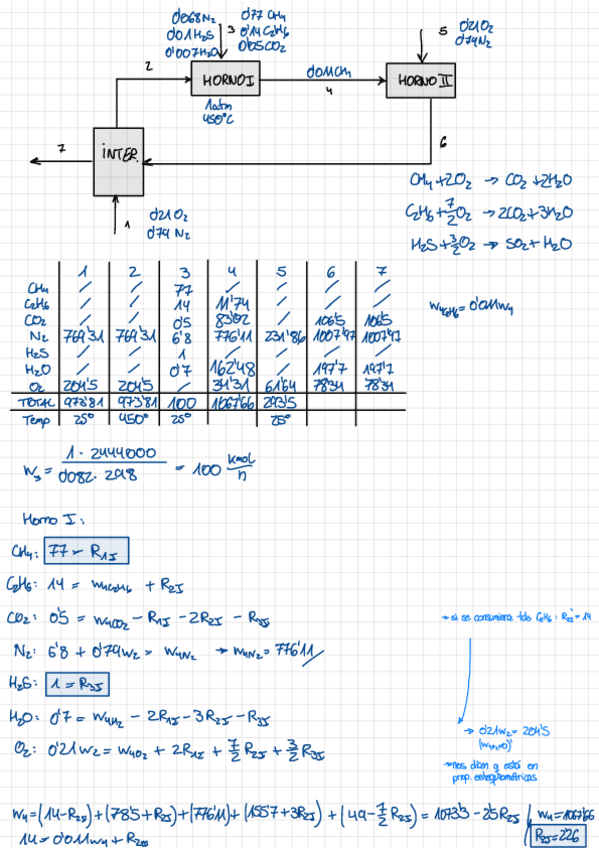 0'068N₂ 0'77 CH₄
0'01H₂S 3 0'14 C₂H₆
0'007H₂O 0'05CO₂
5 0'21O₂
0'79N₂
2
HORNO I
0'011CH₄
4
HORNO II
1atm
450°C
7
INTER.
6
1
0'21O₂
0'79N₂
CH₄+2O₂ → CO₂+2H₂O
C₂H₆+7/2O₂ → 2CO₂+3H₂O
H₂S+3/2O₂ → SO₂+H₂O
1 2 3 4 5 6 7
CH₄ / / 77 / / / /
C₂H₆ / / 14 11'74 / / /
CO₂ / / 0'5 83'02 / 106'5 106'5
N₂ 769'31 769'31 6'8 776'11 231'86 1007'97 1007'97
H₂S / / 1 / / / /
H₂O / / 0'7 162'48 / 197'7 197'7
O₂ 204'5 204'5 / 34'31 61'64 78'34 78'34
TOTAL 973'81 973'81 100 1067'66 293'5
Temp 25° 450° 25° 25°
W₄C₂H₆ = 0'011W₄
W₃ = 1 · 2444000 / 0'082 · 298 = 100 kmol/h
Horno I:
CH₄: 77 = R₁I
C₂H₆: 14 = W₄C₂H₆ + R₂I
CO₂: 0'5 = W₄CO₂ - R₁I - 2R₂I - R₃I
N₂: 6'8 + 0'79W₂ = W₄N₂ → W₄N₂ = 776'11
H₂S: 1 = R₃I
H₂O: 0'7 = W₄H₂ - 2R₁I - 3R₂I - R₃I
O₂: 0'21W₂ = W₄O₂ + 2R₁I + 7/2 R₂I + 3/2 R₃I
→ si se consumiera todo C₂H₆: R₂I = 14
→ 0'21W₂ = 204'5
(W₄O₂=0)
→ nos dicen q está en
prop. estequiométricas
W₄ = (14-R₂I) + (78'5+R₂I) + (776'11) + (155'7+3R₂I) + (49-7/2 R₂I) = 1073'3 - 2'5R₂I W₄ = 1067'66
14 = 0'011W₄ + R₂I R₂I = 2'26